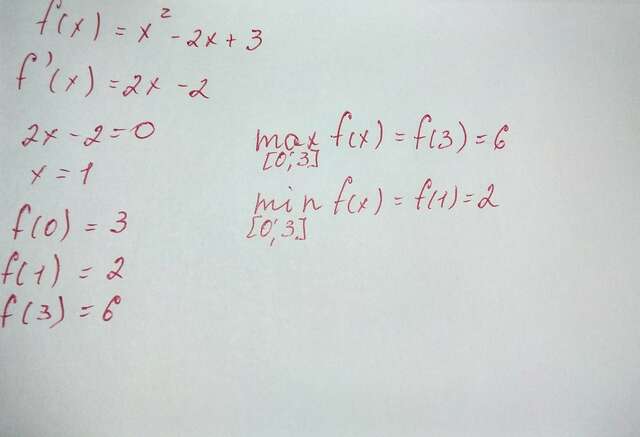 f(x) = x² - 2x + 3
f'(x) = 2x - 2
2x - 2 = 0
x = 1
f(0) = 3
f(1) = 2
f(3) = 6
max f(x) = f(3) = 6
[0;3]
min f(x) = f(1) = 2
[0;3]